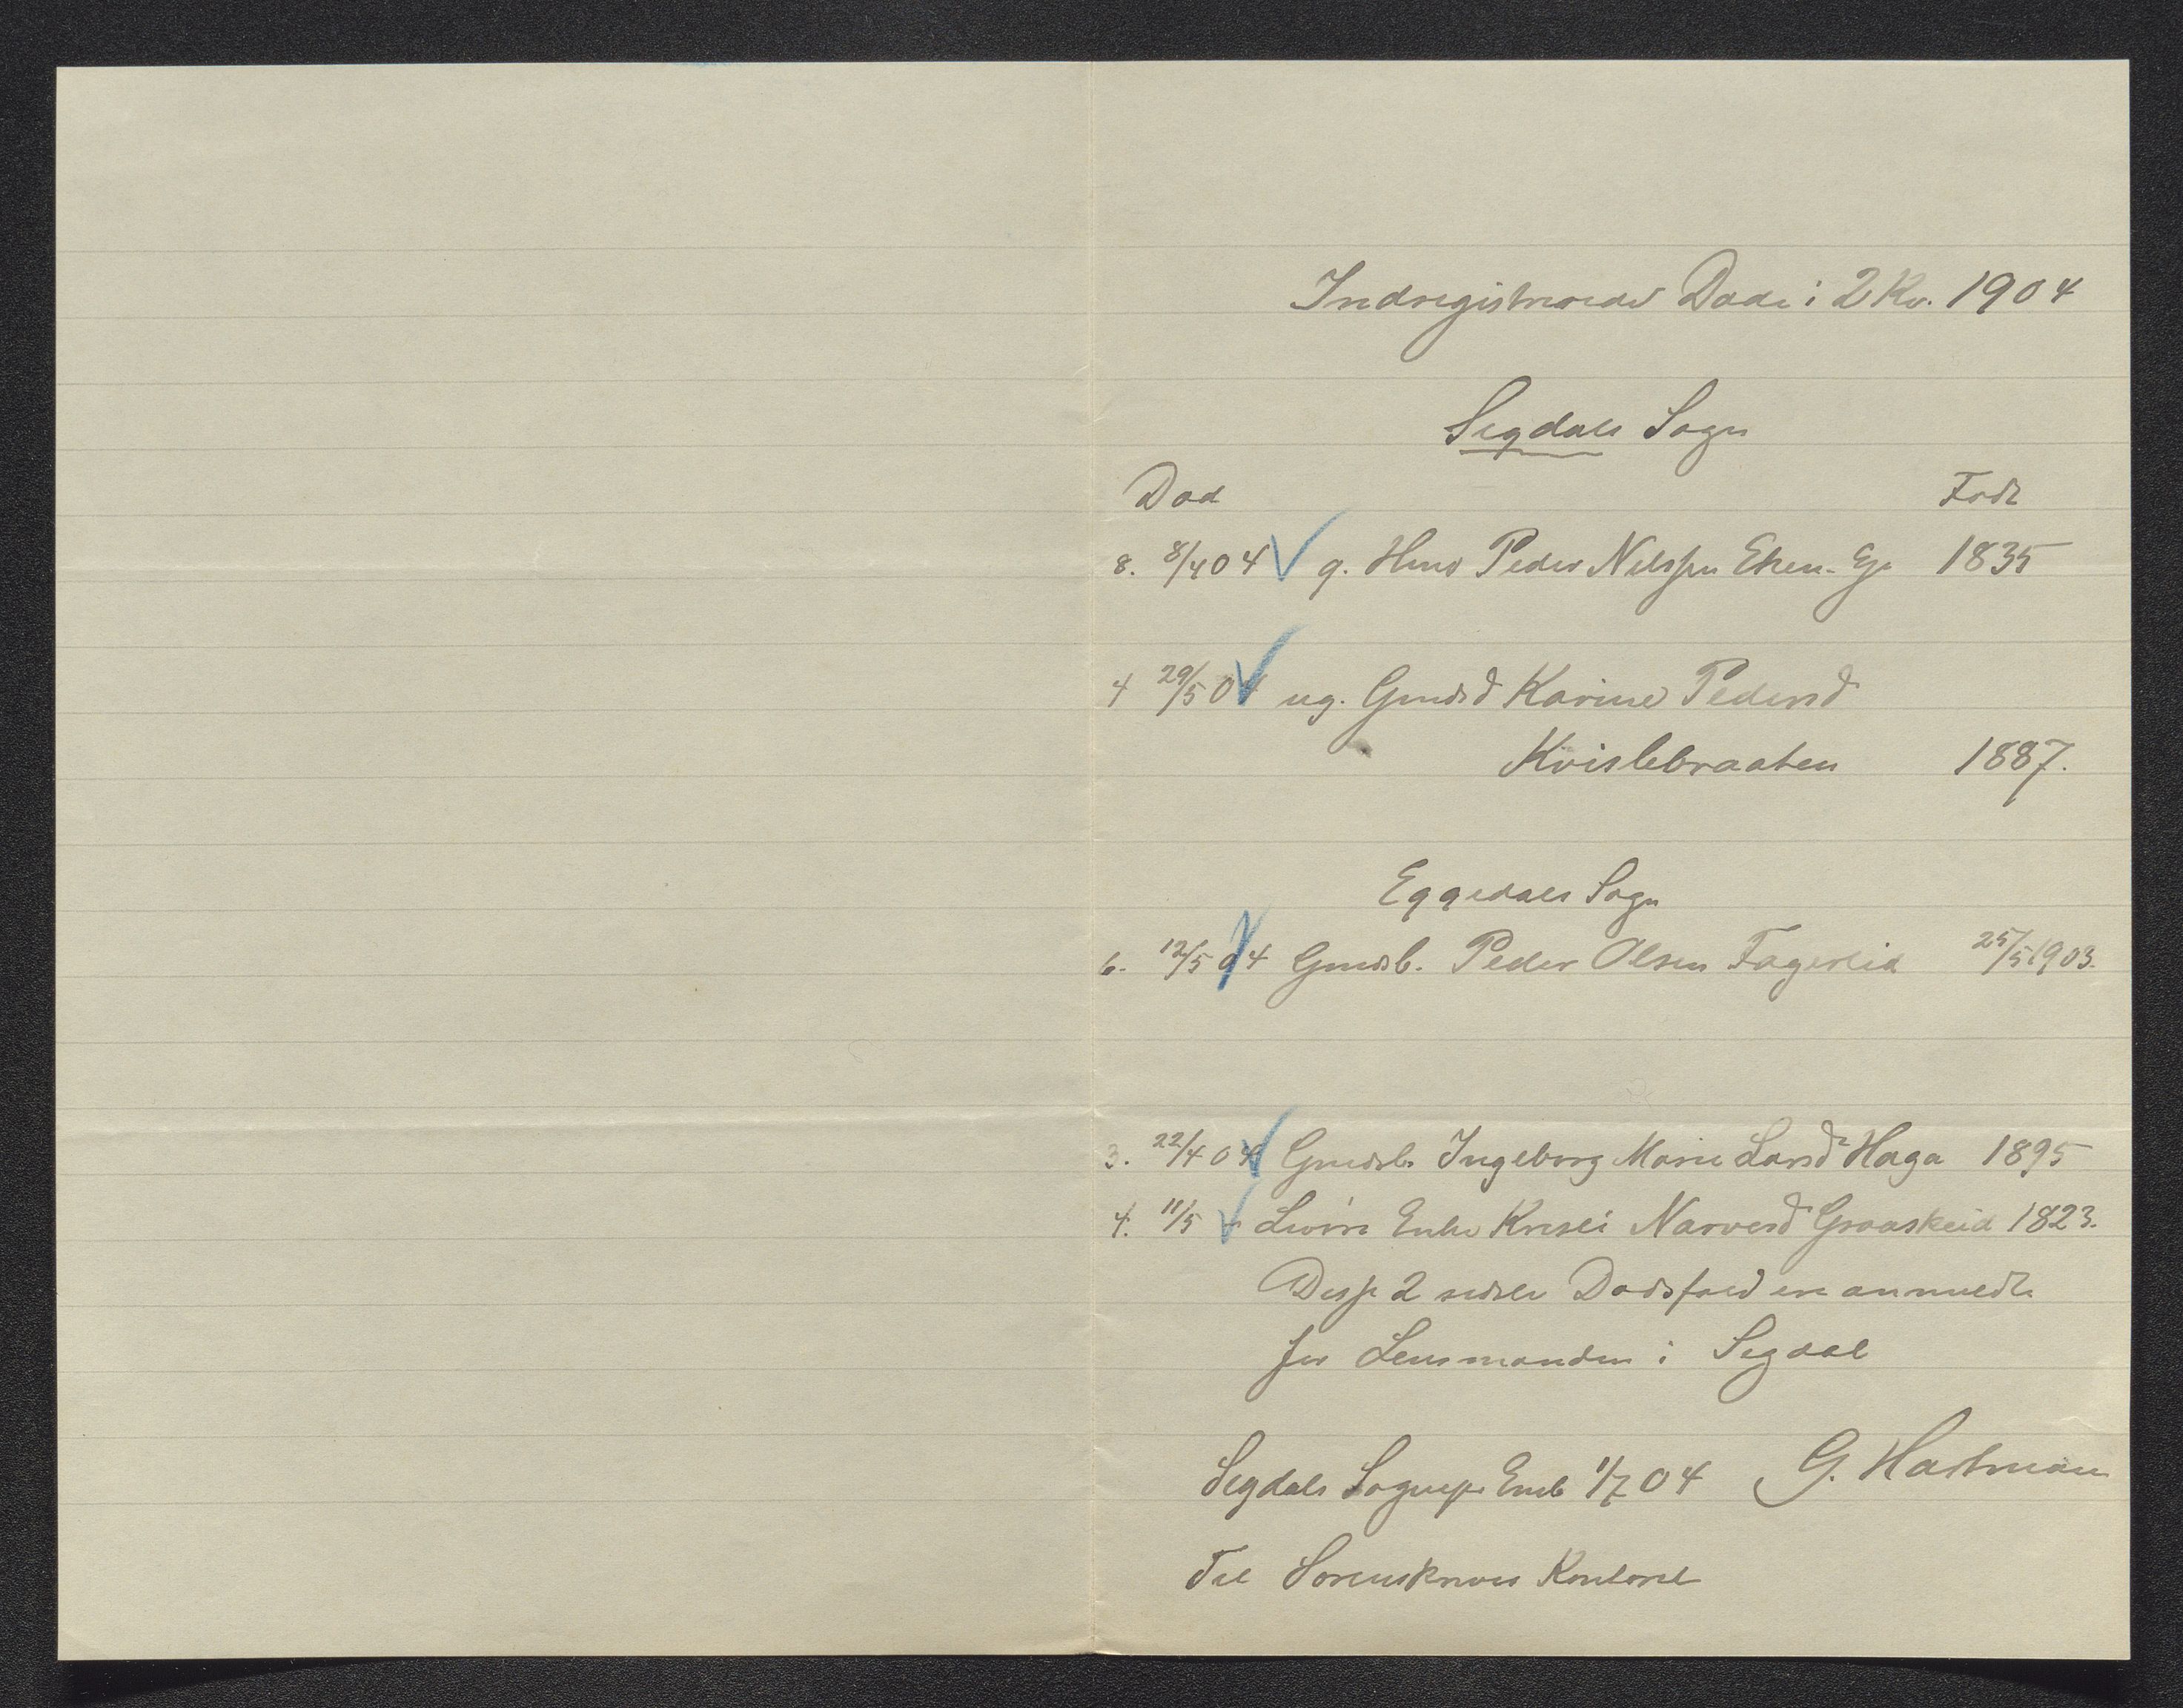 Indregistrerede Døde i 2 Kv. 1904
Sigdals Sogn
Død Født
8. 8/4 04 g. Hmd Peder Nilssen Eken. Eje 1835
4 29/5 04 ug. Grndd Karine Pedersd
Kvislebraaten 1887.
Eggedals Sogn
6. 12/5 04 Grndb. Peder Olsen Fagerlid 25/5 1903.
3. 22/4 04 Grndb. Ingeborg Marie Larsd Haga 1895
4. 11/5 - Enke Krisli Narvesd Graaskeid 1823.
Disse 2 sidste Dødsfald ere anmeldte
for Lensmanden i Sigdal
Sigdals Sognep. Emb 1/7 04 G. Hartman
Til Sorenskrivers Kontoret